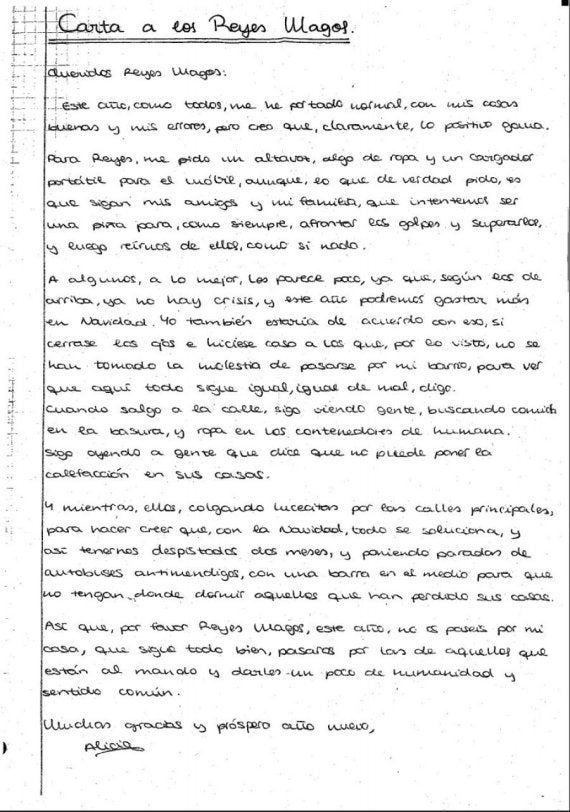 Carta a los Reyes Magos.
Queridos Reyes Magos:
Este año, como todos, me he portado normal, con mis cosas
buenas y mis errores, pero creo que, claramente, lo positivo gana.
Para Reyes, me pido un altavoz, algo de ropa y un cargador
portátil para el móvil, aunque, lo que de verdad pido, es
que sigan mis amigos y mi familia, que intentemos ser
una piña para, como siempre, afrontar los golpes y superarlos,
y luego reírnos de ellos, como si nada.
A algunos, a lo mejor, les parece poco, ya que, según los de
arriba, ya no hay crisis, y este año podremos gastar más
en Navidad. Yo también estaría de acuerdo con eso, si
cerrase los ojos e hiciese caso a los que, por lo visto, no se
han tomado la molestia de pasarse por mi barrio, para ver
que aquí todo sigue igual, igual de mal, digo.
Cuando salgo a la calle, sigo viendo gente, buscando comida
en la basura, y ropa en los contenedores de humana.
Sigo oyendo a gente que dice que no puede poner la
calefacción en sus casas.
Y mientras, ellos, colgando lucecitas por las calles principales,
para hacer creer que, con la Navidad, todo se soluciona, y
así tenernos despistados dos meses, y poniendo paradas de
autobuses antimendigos, con una barra en el medio para que
no tengan donde dormir aquellos que han perdido sus casas.
Así que, por favor Reyes Magos, este año, no os paseis por mi
casa, que sigue todo bien, pasaros por las de aquellos que
están al mando y darles un poco de humanidad y
sentido común.
Muchas gracias y próspero año nuevo,
Alicia